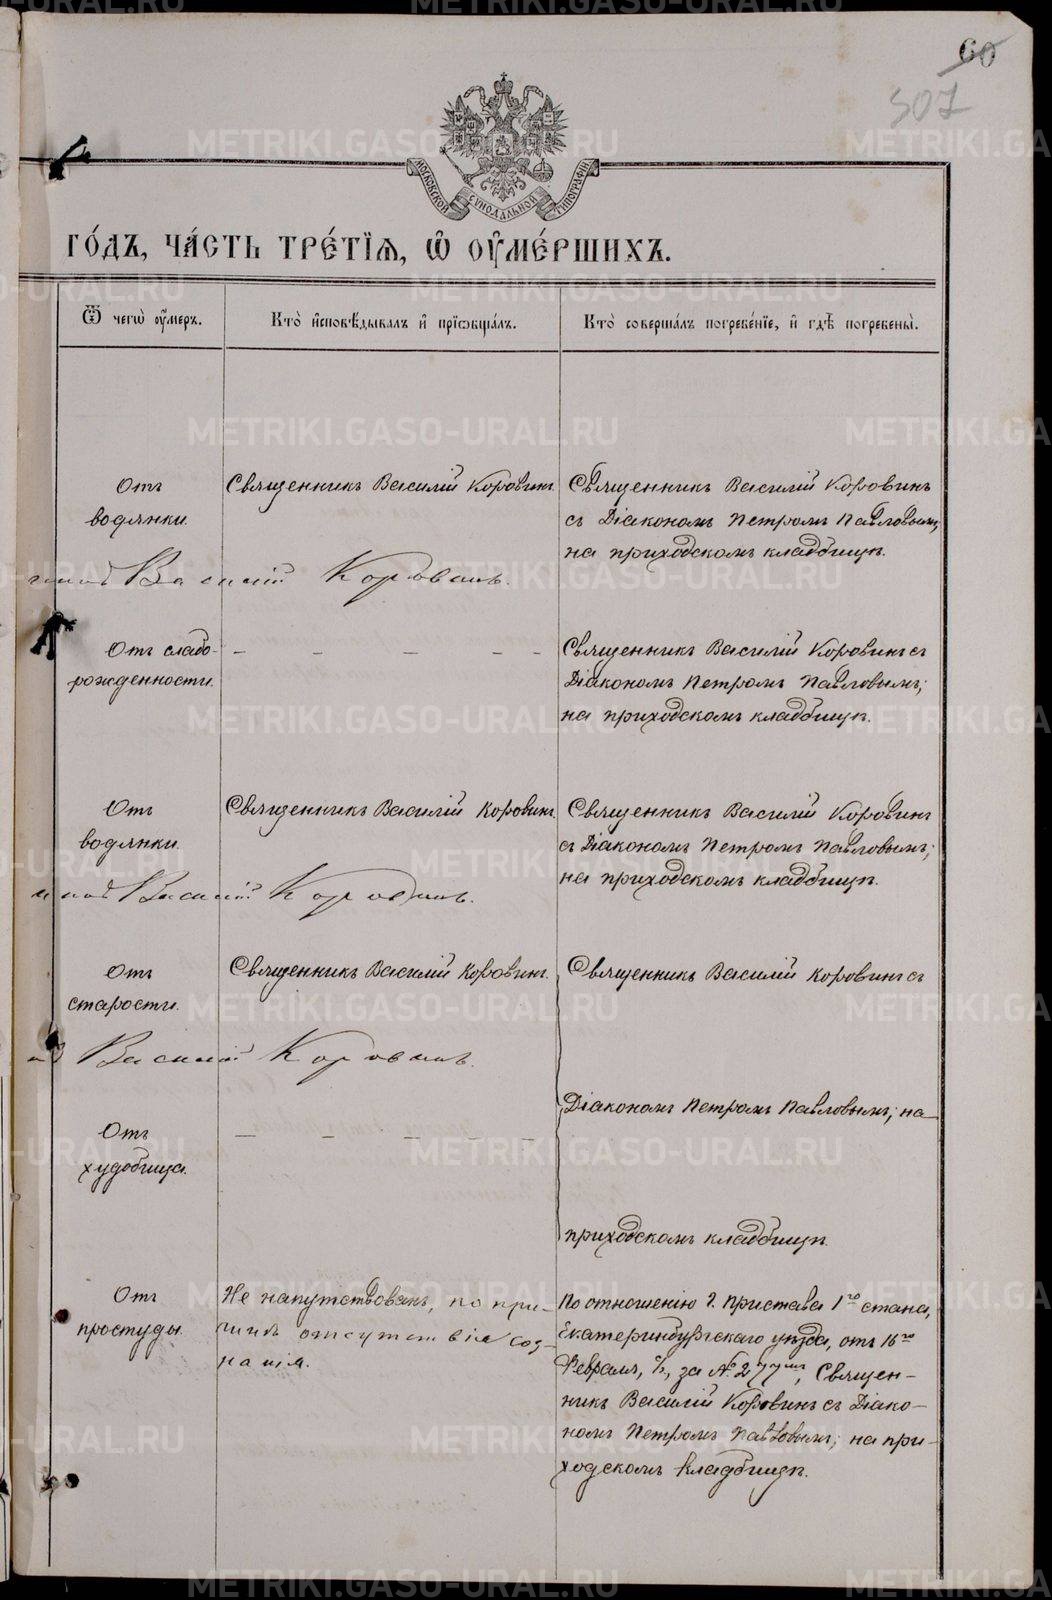 60
507
МОСКОВСКОЙ СѴНОДАЛЬНОЙ ТИПОГРАФІИ
ГО́ДЪ, ЧА́СТЬ ТРЕ́ТІѦ, Ѡ҆ ОУ҆МЕ́РШИХЪ.
Ѿ чегѡ̀ оу҆́меръ.
Кто̀ и҆сповѣ́дывалъ и҆ прїѡбща́лъ.
Кто̀ соверша́лъ погребе́нїе, и҆ гдѣ̀ погребены̀.
Отъ
водянки.
Священникъ Василій Коровинъ.
Священникъ Василій Коровинъ
съ Діакономъ Петромъ Павловымъ;
на приходскомъ кладбищѣ.
Василій Коровинъ.
Отъ слабо-
рожденности.
— — — — —
Священникъ Василій Коровинъ съ
Діакономъ Петромъ Павловымъ;
на приходскомъ кладбищѣ.
Отъ
водянки.
Священникъ Василій Коровинъ.
Священникъ Василій Коровинъ
съ Діакономъ Петромъ Павловымъ;
на приходскомъ кладбищѣ.
Василій Коровинъ.
Отъ
старости.
Священникъ Василій Коровинъ.
Священникъ Василій Коровинъ съ
Василій Коровинъ.
Діакономъ Петромъ Павловымъ; на
Отъ
худобища.
— — — — —
приходскомъ кладбищѣ.
Отъ
простуды.
Не напутствованъ, по при-
чинѣ отсутствія соз-
нанія.
По отношенію г. Пристава 1го стана,
Екатеринбургскаго уѣзда, отъ 16го
Февраля, с/г, за № 277мъ, Священ-
никъ Василій Коровинъ съ Діако-
номъ Петромъ Павловымъ; на при-
ходскомъ кладбищѣ.
METRIKI.GASO-URAL.RU